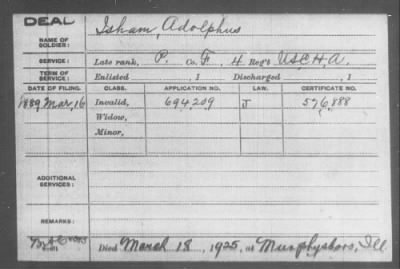 DEAL
NAME OF SOLDIER: Isham, Adolphus
SERVICE: Late rank, P. Co. F, 4 Reg't U.S.C.H.A.
TERM OF SERVICE: Enlisted , 1 Discharged , 1
DATE OF FILING. CLASS. APPLICATION NO. LAW. CERTIFICATE NO.
1889 Mar, 16 Invalid, 694,209 J 576,888
Widow,
Minor,
ADDITIONAL SERVICES:
REMARKS:
Died March 18, 1925, at Murphysboro, Ill.